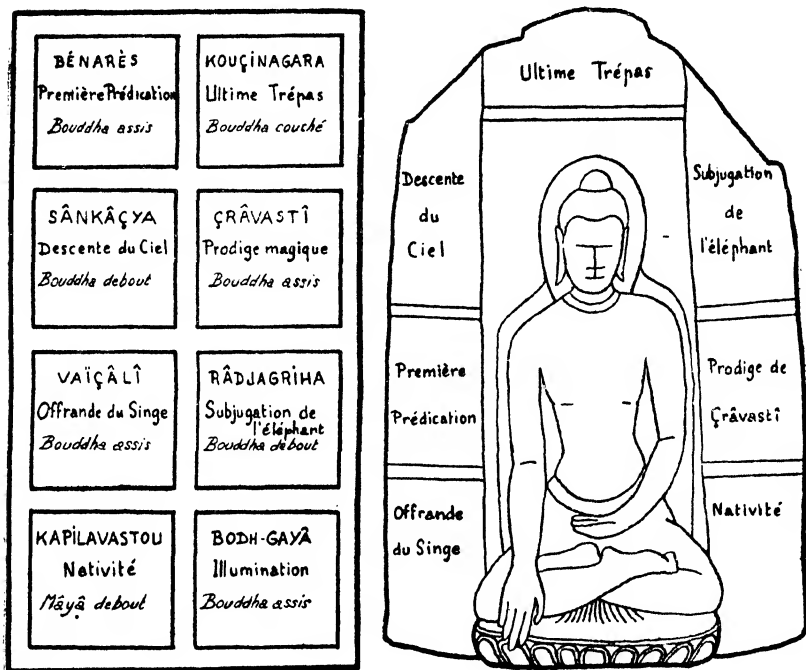 BÉNARÈS
Première Prédication
Bouddha assis
KOUÇINAGARA
Ultime Trépas
Bouddha couché
SÂNKÂÇYA
Descente du Ciel
Bouddha debout
ÇRÂVASTÎ
Prodige magique
Bouddha assis
VAÏÇÂLÎ
Offrande du Singe
Bouddha assis
RÂDJAGRIHA
Subjugation de
l'éléphant
Bouddha debout
KAPILAVASTOU
Nativité
Mâyâ debout
BODH-GAYÂ
Illumination
Bouddha assis
Ultime Trépas
Descente
du
Ciel
Subjugation
de
l'éléphant
Première
Prédication
Prodige de
Çrâvastî
Offrande
du Singe
Nativité